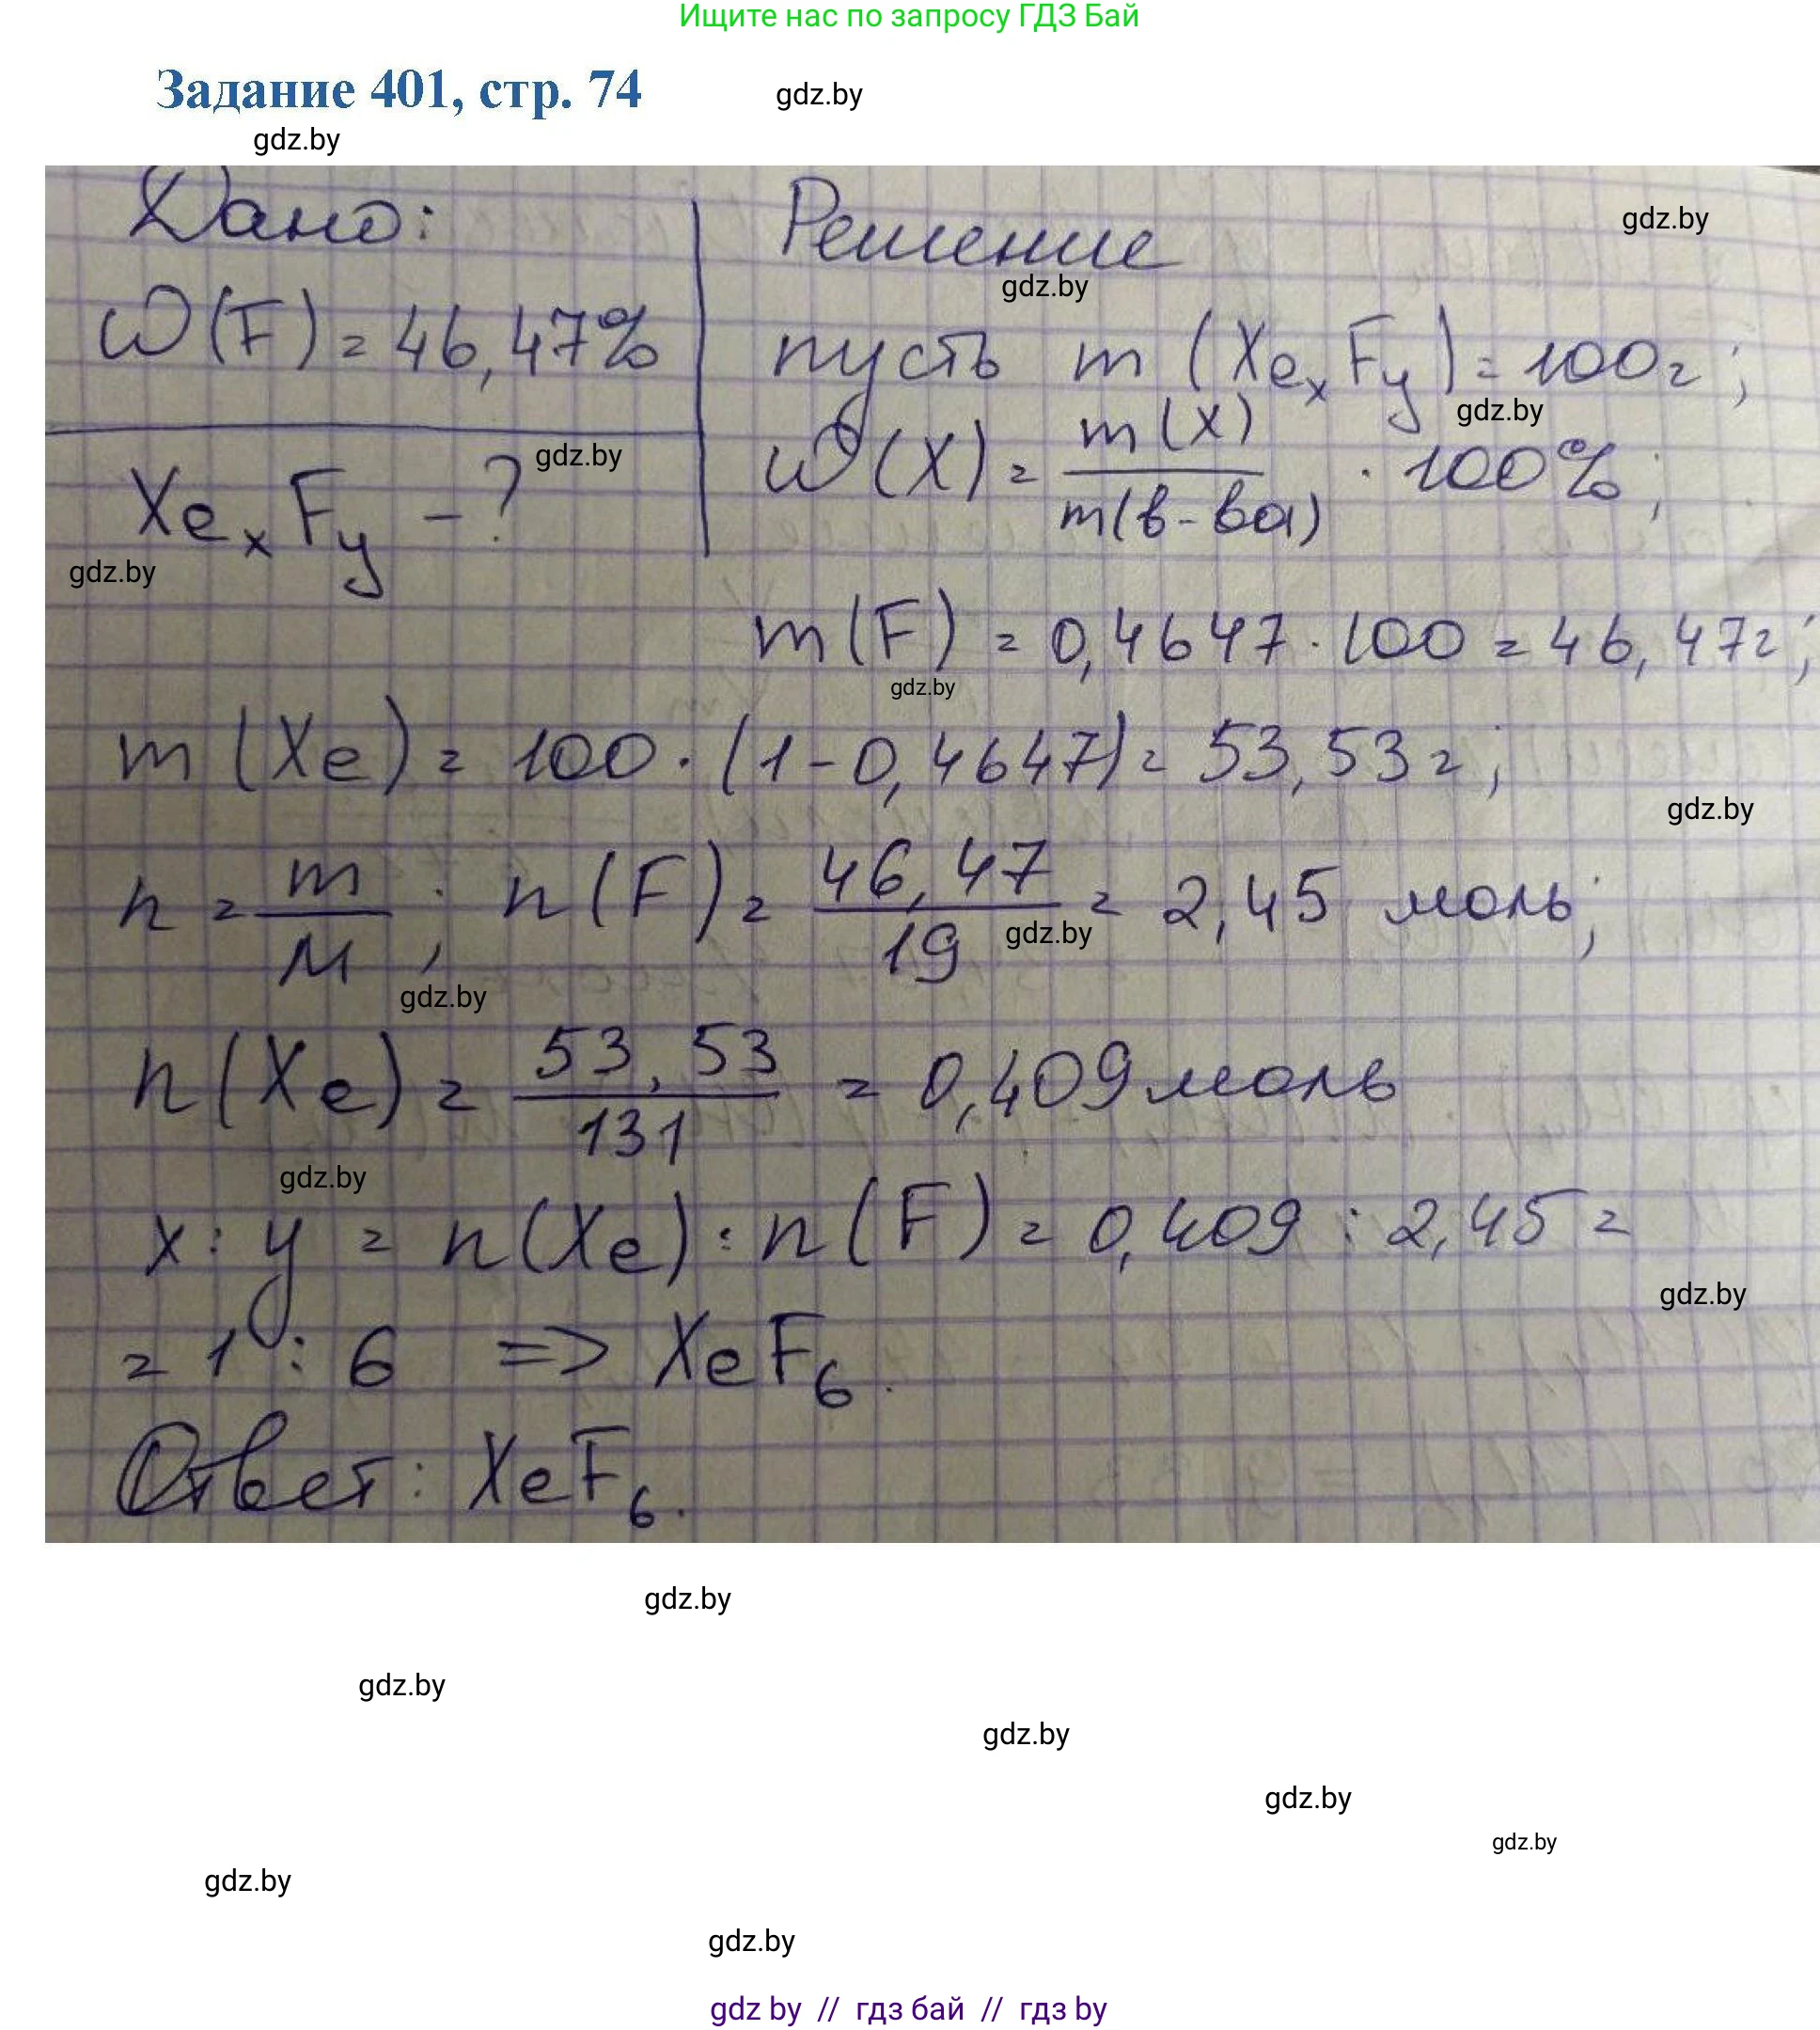 Ищите нас по запросу ГДЗ Бай
Задание 401, стр. 74
gdz.by
gdz.by
Дано:
Решение
gdz.by
gdz.by
ω(F) = 46,47%
пусть m (XeₓFᵧ) = 100г;
gdz.by
XeₓFᵧ - ?
gdz.by
ω(X) = m(X) / m(в-ва) · 100%;
gdz.by
m(F) = 0,4647 · 100 = 46,47г;
gdz.by
m(Xe) = 100 · (1 - 0,4647) = 53,53г;
gdz.by
n = m / M; n(F) = 46,47 / 19 = 2,45 моль;
gdz.by
gdz.by
n(Xe) = 53,53 / 131 = 0,409 моль
gdz.by
x : y = n(Xe) : n(F) = 0,409 : 2,45 =
gdz.by
= 1 : 6 => XeF₆.
Ответ: XeF₆.
gdz.by
gdz.by
gdz.by
gdz.by
gdz.by
gdz.by
gdz.by
gdz by // гдз бай // гдз by